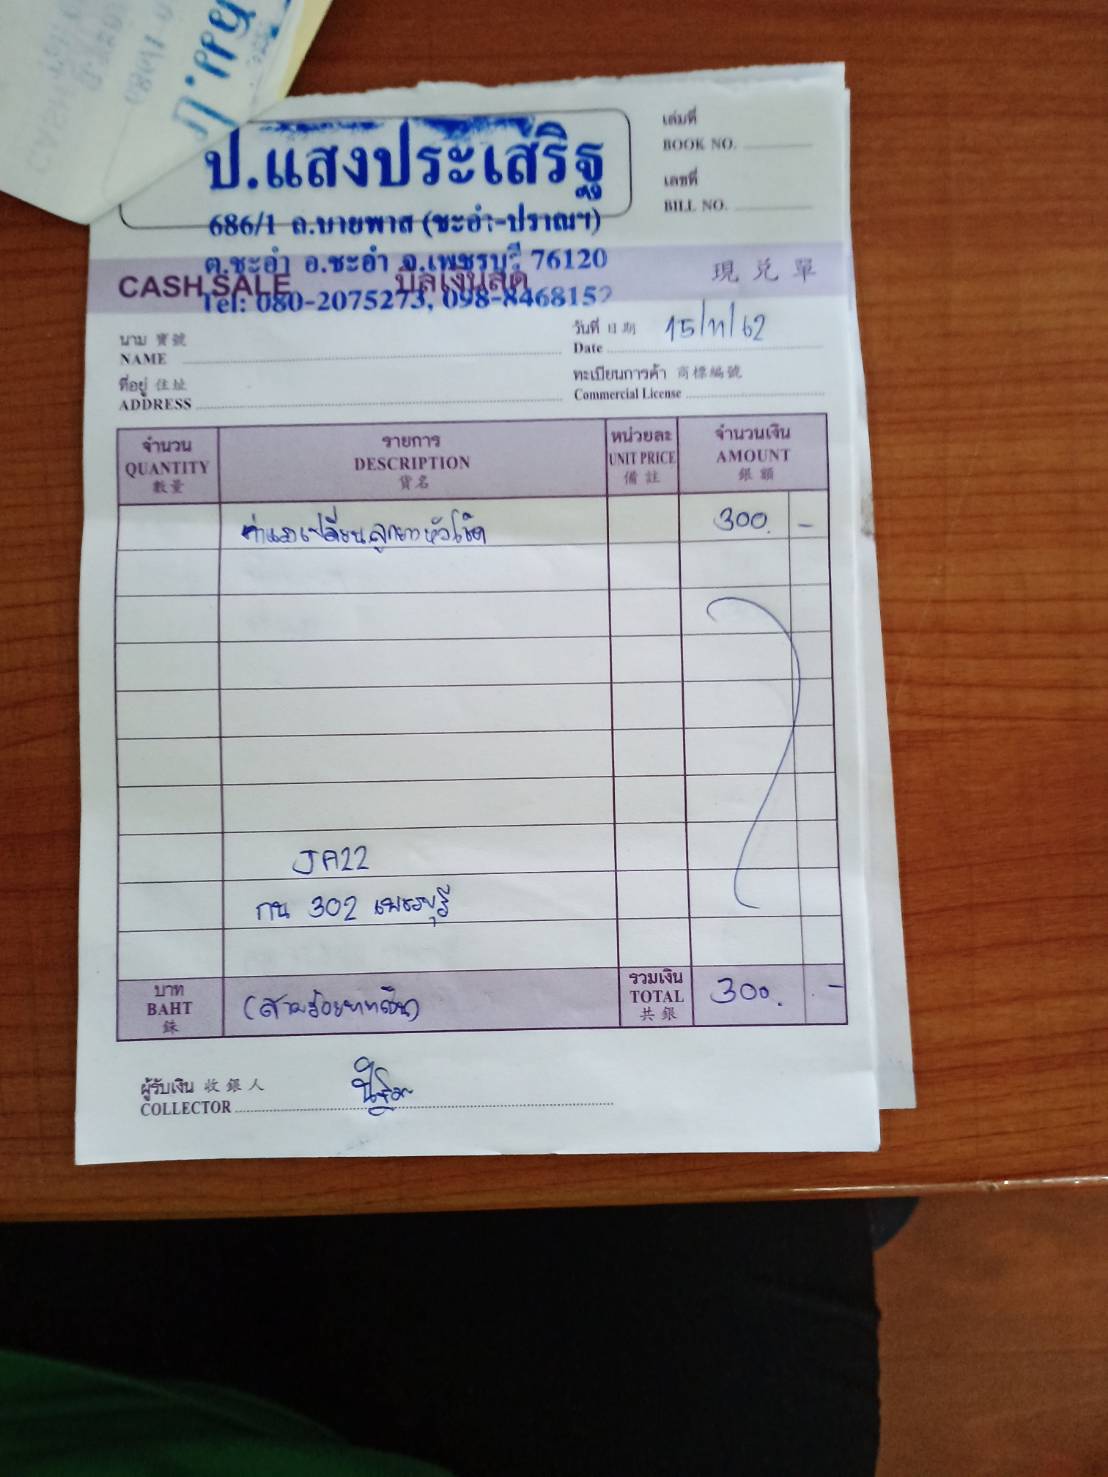 ป.แสงประเสริฐ
686/1 ถ.บายพาส (ชะอำ-ปราณฯ)
ต.ชะอำ อ.ชะอำ จ.เพชรบุรี 76120
Tel: 080-2075273, 098-8468152
เล่มที่
BOOK NO.
เลขที่
BILL NO.
CASH SALE บิลเงินสด 現兑單
นาม 寶號
NAME
วันที่ 日期 15/11/62
Date
ที่อยู่ 住址
ADDRESS
ทะเบียนการค้า 商標編號
Commercial License
จำนวน รายการ หน่วยละ จำนวนเงิน
QUANTITY DESCRIPTION UNIT PRICE AMOUNT
數量 貨名 備註 銀額
ค่าแรงเปลี่ยนลูกยางหัวโช๊ค 300. -
JA22
กน 302 เพชรบุรี
บาท
BAHT (สามร้อยบาทถ้วน)
銖
รวมเงิน
TOTAL 300. -
共銀
ผู้รับเงิน 收銀人
COLLECTOR